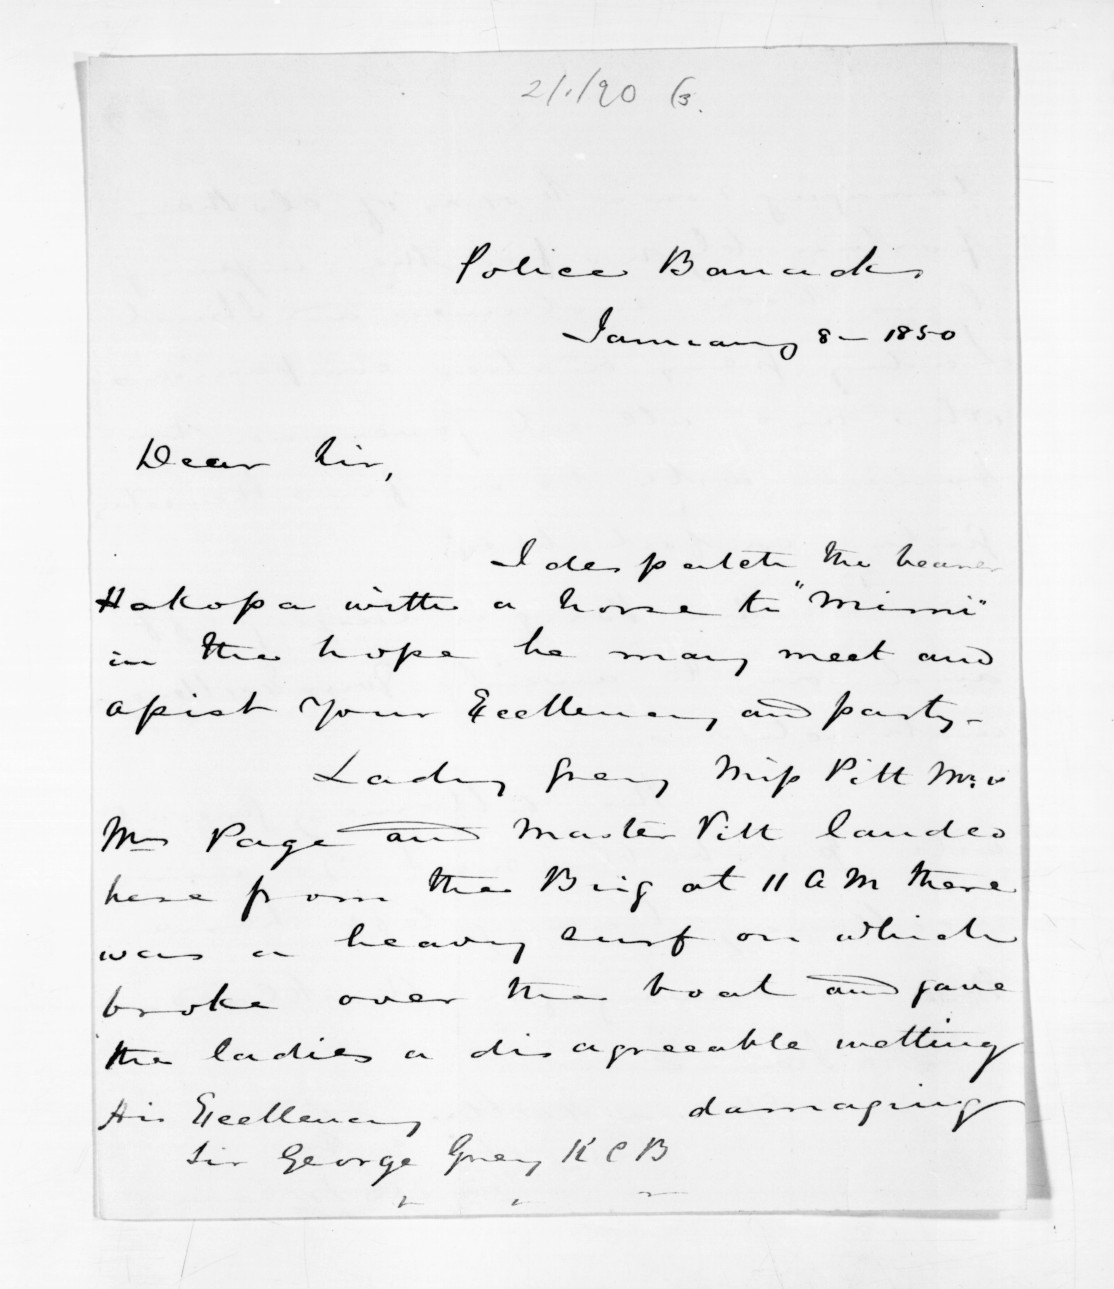 2/1/90 G3.
Police Barracks
January 8 - 1850
Dear Sir,
I despatch the bearer
Hakopa with a horse to "Mimi"
in the hope he may meet and
assist Your Excellency and party -
Lady Grey Miss Pitt Mr. &
Mrs Page and Master Pitt landed
here from the Brig at 11 A M there
was a heavy surf on which
broke over the boat and gave
the ladies a disagreeable wetting
damaging
His Excellency
Sir George Grey K C B